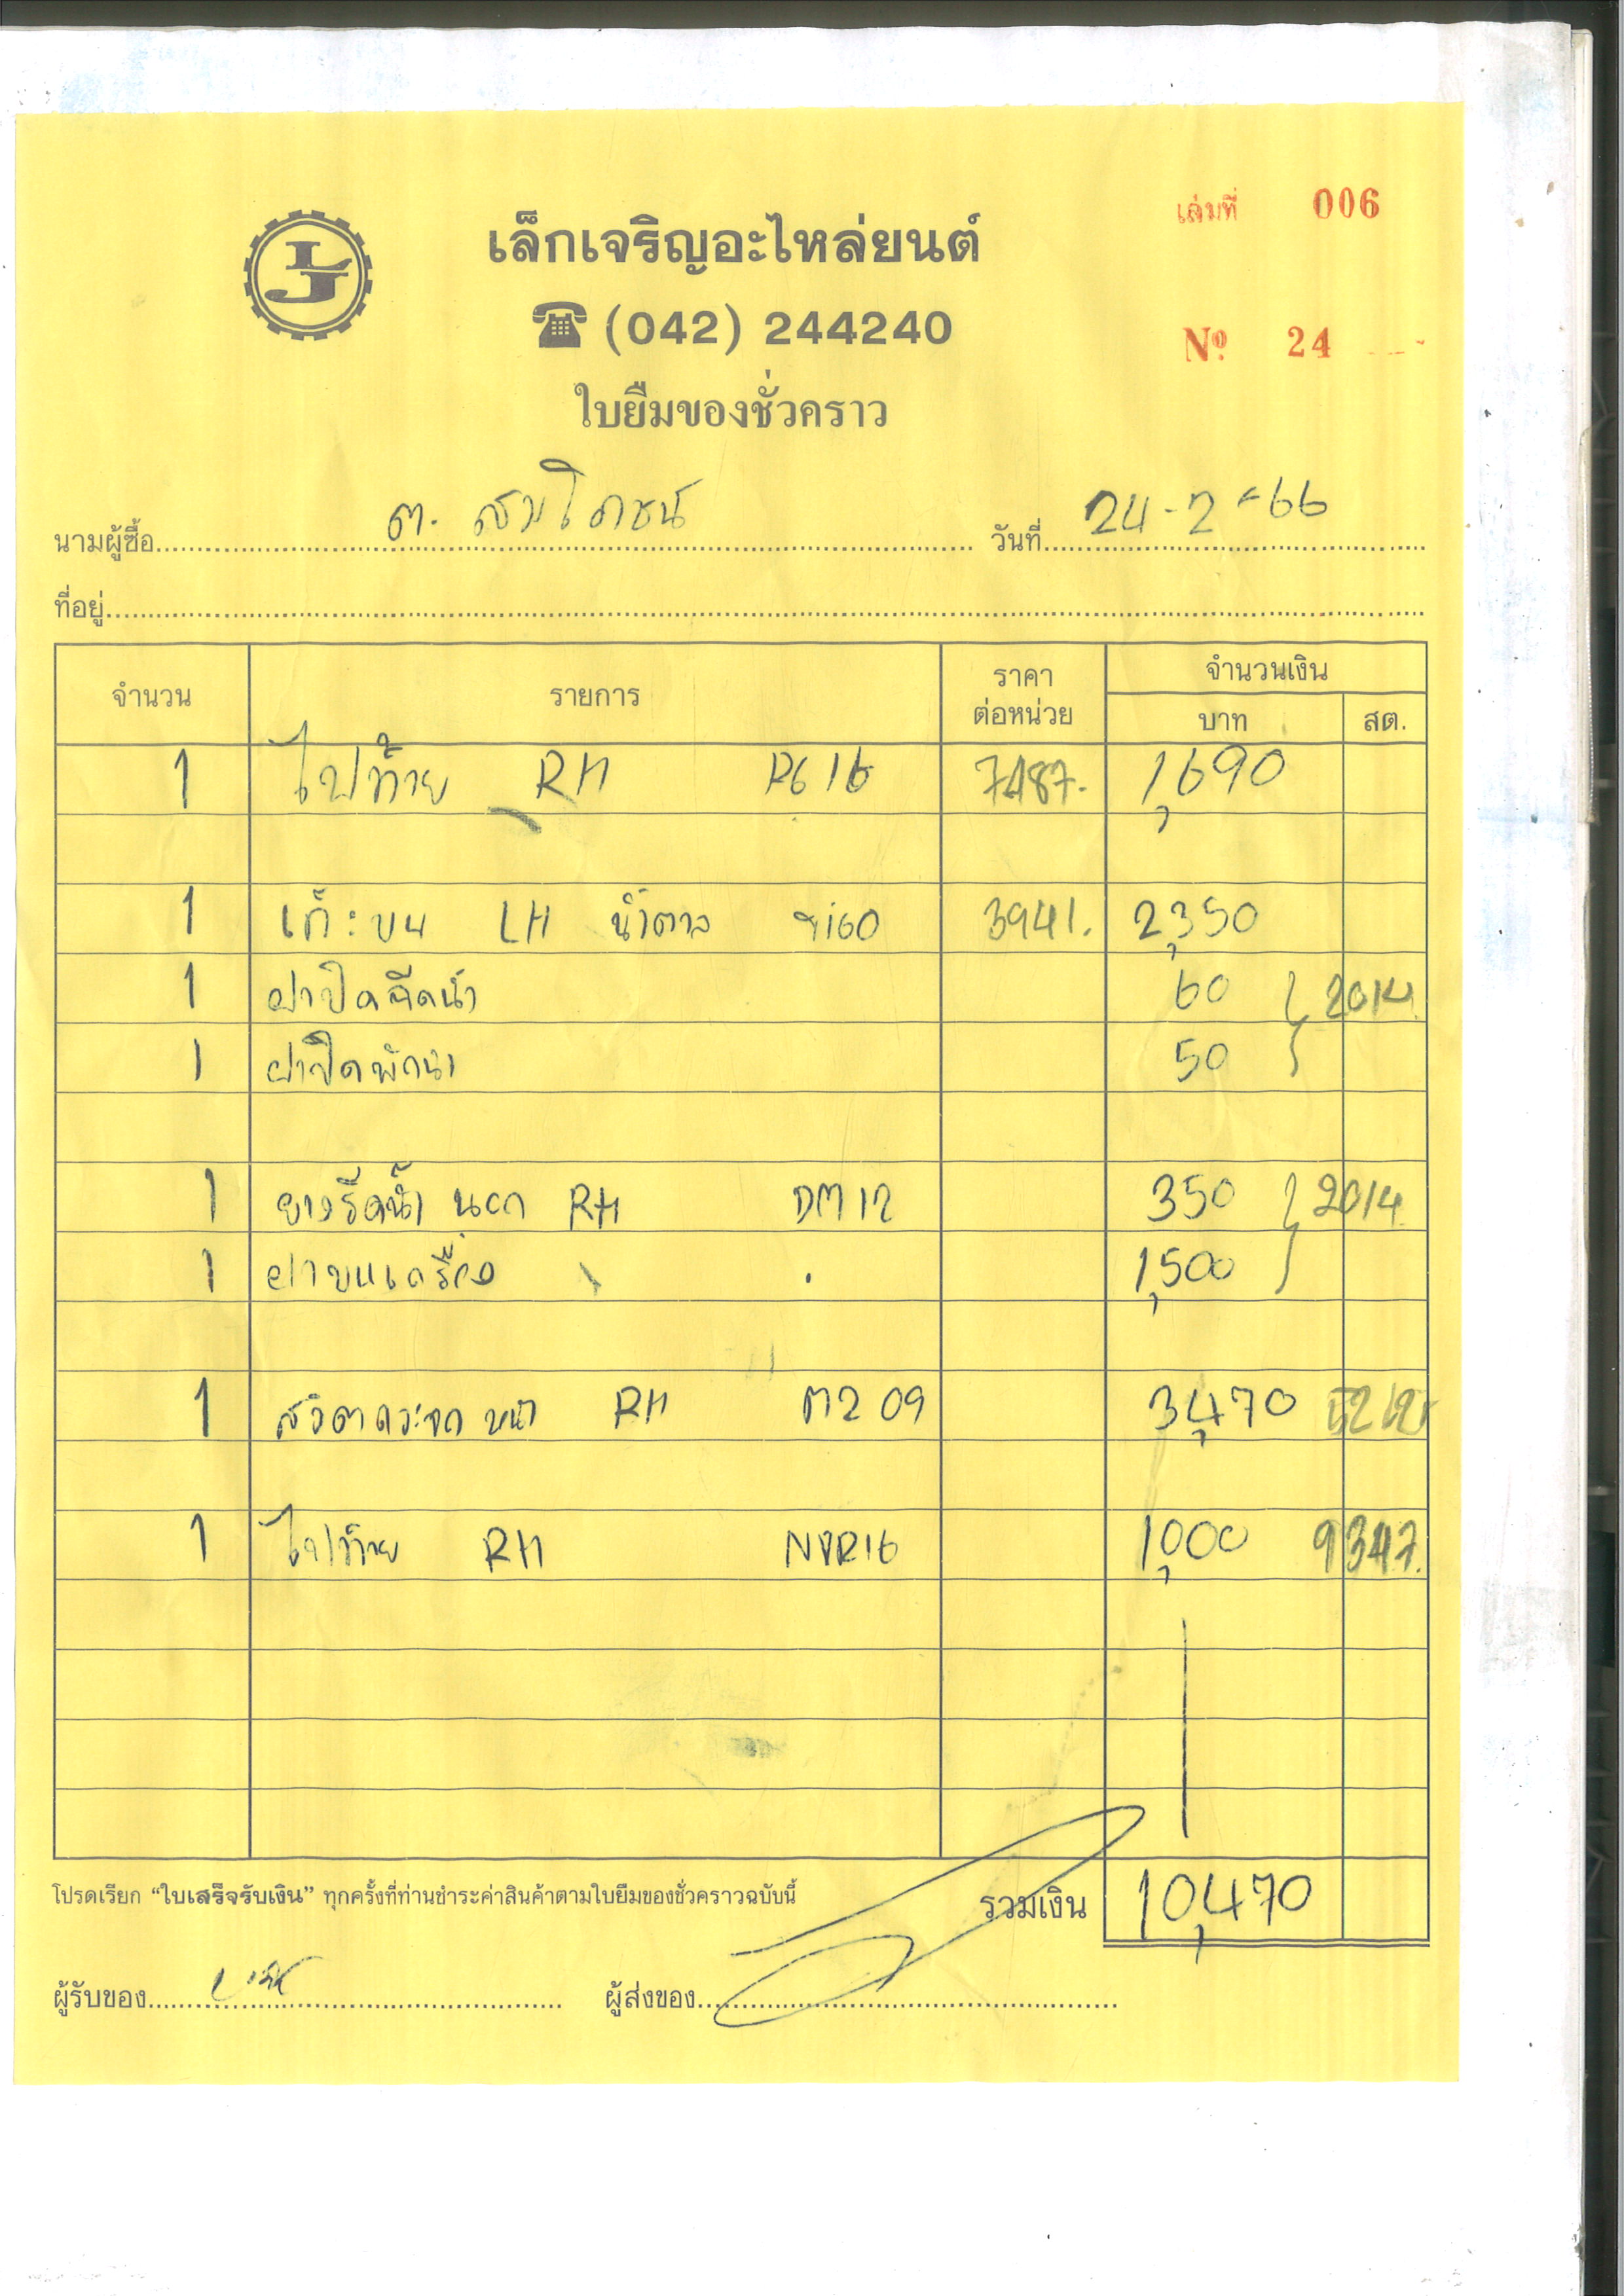 เล่มที่ 006
LJ
เล็กเจริญอะไหล่ยนต์
☎ (042) 244240
Nº 24
ใบยืมของชั่วคราว
นามผู้ซื้อ ต. สมโภชน์ วันที่ 24-2-66
ที่อยู่
จำนวน รายการ ราคาต่อหน่วย จำนวนเงิน
บาท สต.
1 ไฟท้าย RH RG16 7487. 1,690
1 LH น้ำตาล 3941. 2,350
1 ฝาปิดฉีดน้ำ 60 2014
1 ฝาปิดพักน้ำ 50
1 ยางรีดน้ำ นอก RH DM12 350 2014
1 1,500
1 สวิตกระจก หน้า RH M2 09 3,470
1 ไฟท้าย RH 1,000 9347.
โปรดเรียก “ใบเสร็จรับเงิน” ทุกครั้งที่ท่านชำระค่าสินค้าตามใบยืมของชั่วคราวฉบับนี้ รวมเงิน 10,470
ผู้รับของ ผู้ส่งของ